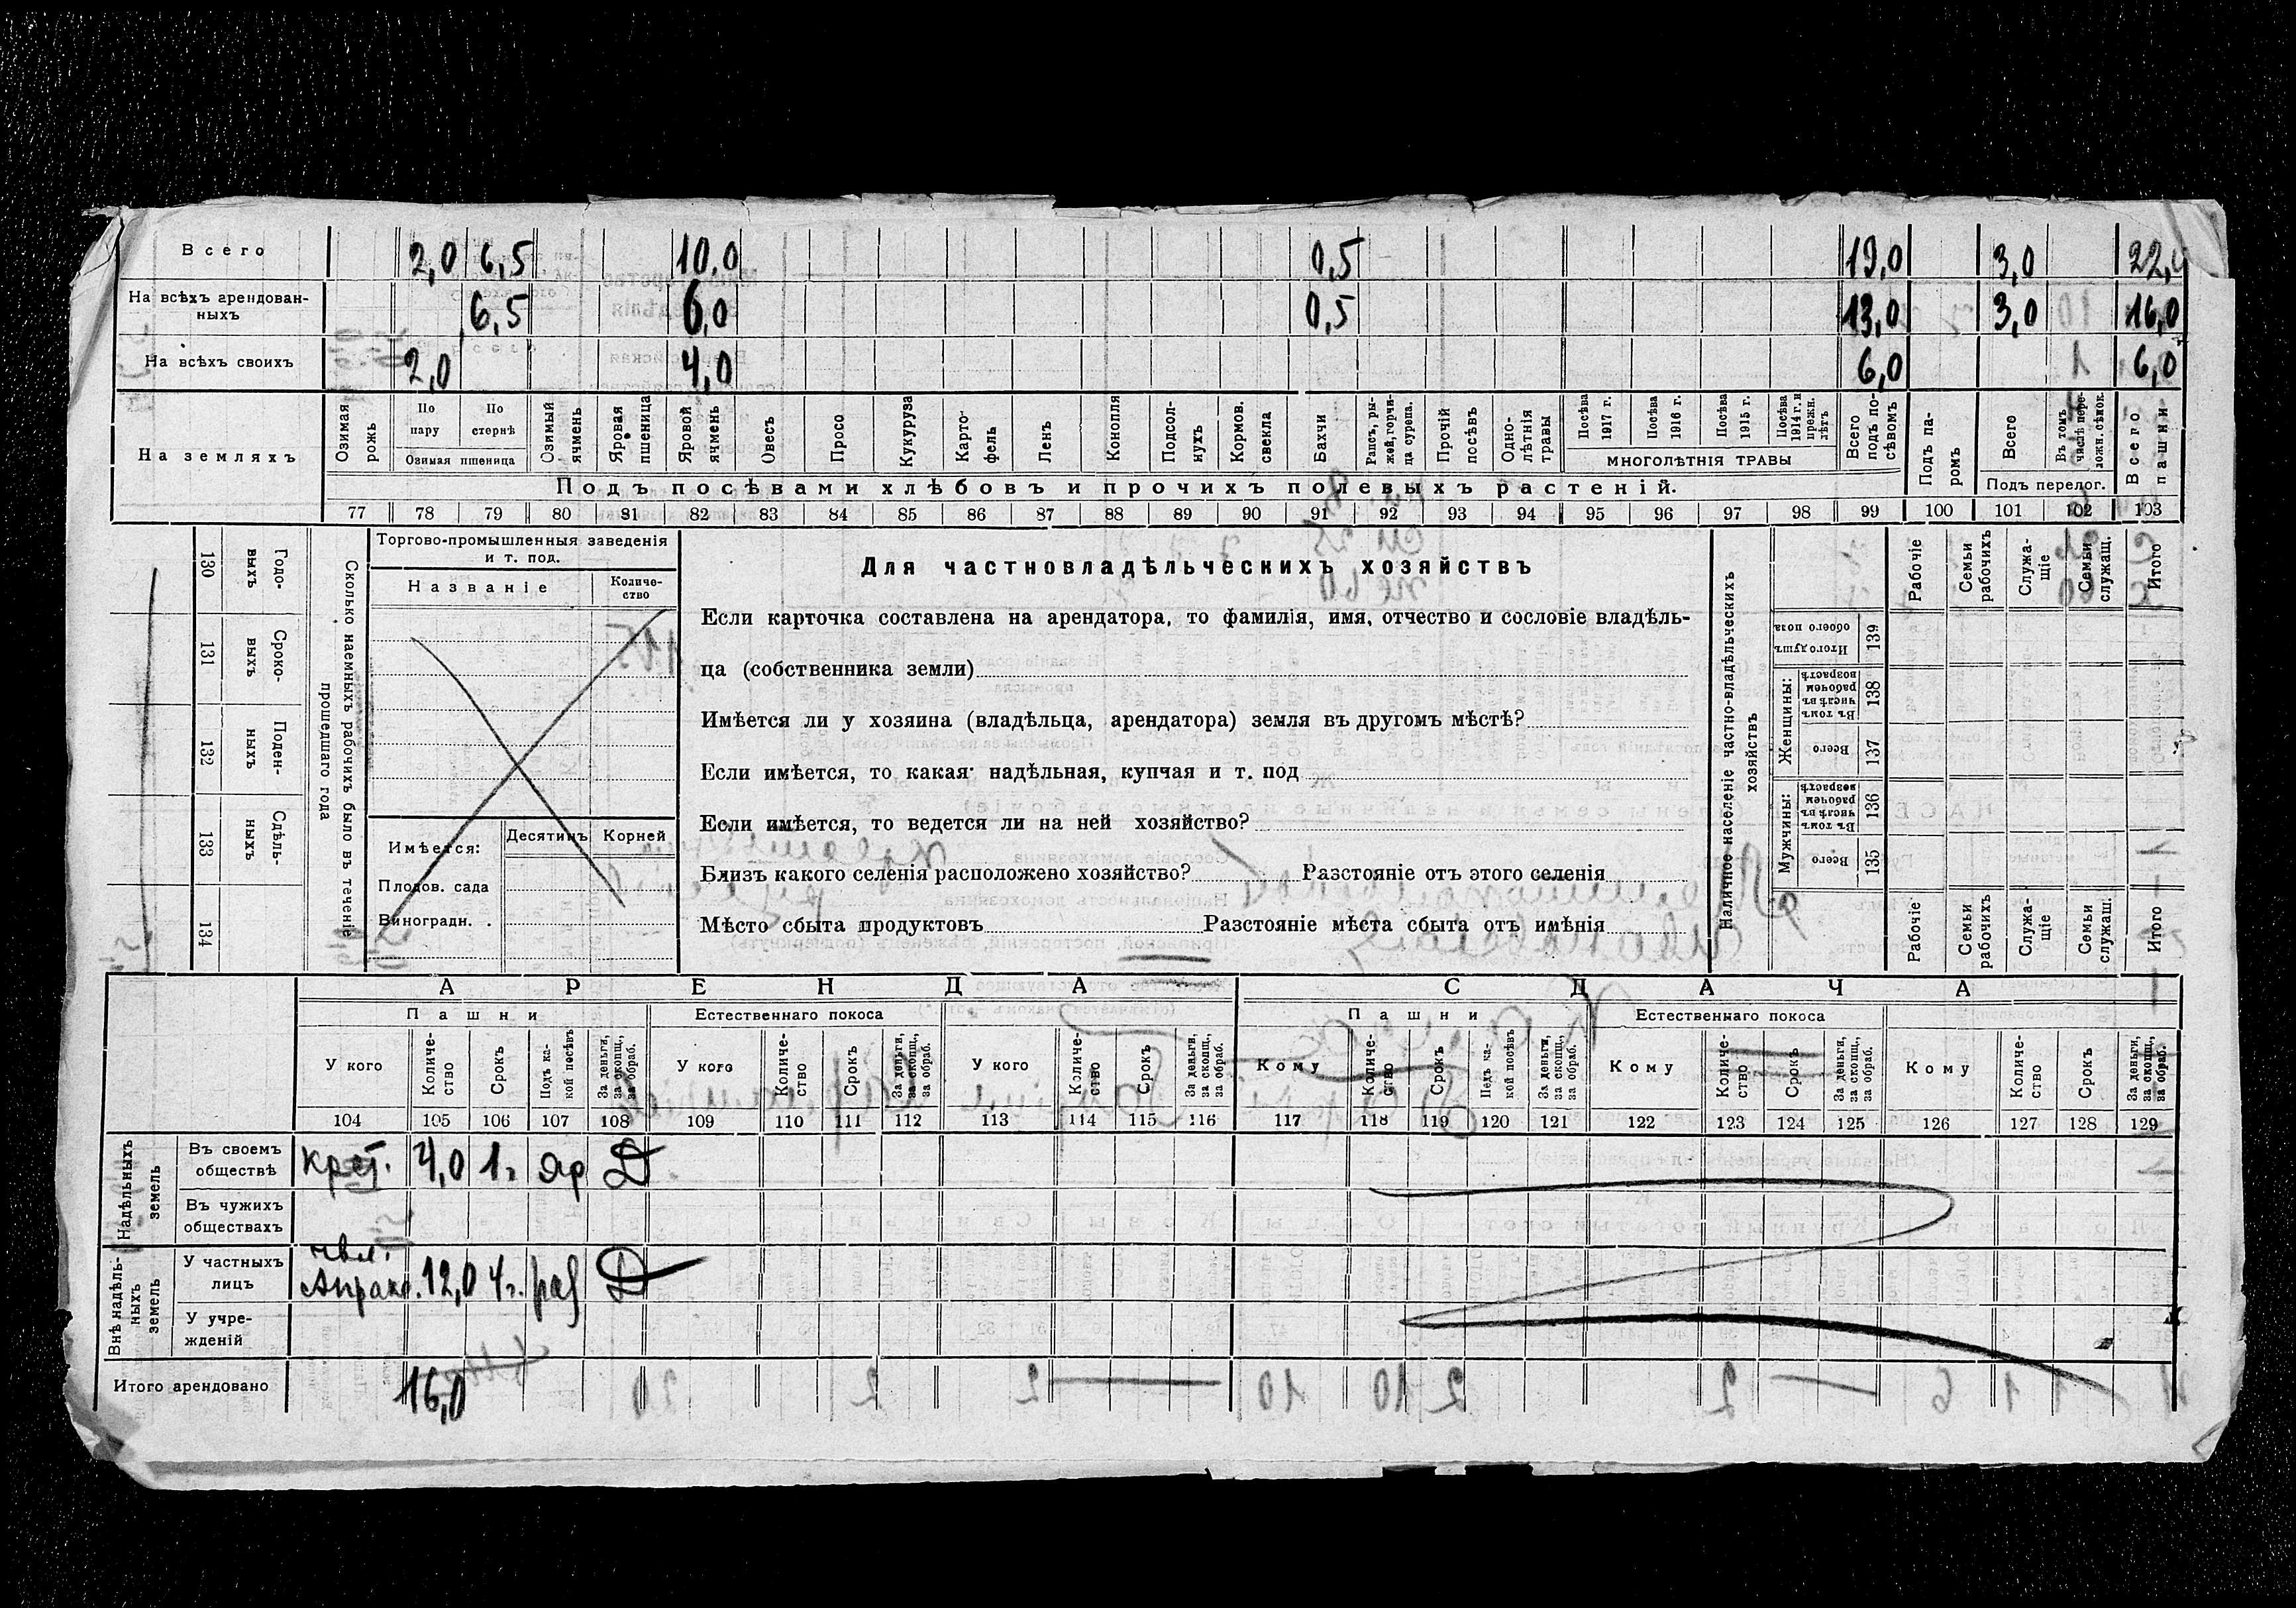 Всего 2,0 6,5 10,0 0,5 19,0 3,0
На всѣхъ арендованныхъ 6,5 6,0 0,5 13,0 3,0 16,0
На всѣхъ своихъ 2,0 4,0 6,0 6,0
На земляхъ
Озимая рожь
По пару
По стернѣ
Озимая пшеница
Озимый ячмень
Яровая пшеница
Яровой ячмень
Овесъ
Просо
Кукуруза
Картофель
Ленъ
Конопля
Подсолнухъ
Кормов. свекла
Бахчи
Рапсъ, рыжей, горчица сурепа.
Прочій посѣвъ
Однолѣтнія травы
Посѣва 1917 г.
Посѣва 1916 г.
Посѣва 1915 г.
Посѣва 1914 г. и прежн. лѣтъ
МНОГОЛѢТНІЯ ТРАВЫ
Всего подъ посѣвомъ
Подъ паромъ
Всего
Въ томъ числѣ переложн. сѣнок.
Подъ перелог.
Всего пашни
Подъ посѣвами хлѣбовъ и прочихъ полевыхъ растеній.
77 78 79 80 81 82 83 84 85 86 87 88 89 90 91 92 93 94 95 96 97 98 99 100 101 102 103
130 Годовыхъ
131 Сроковыхъ
132 Поденныхъ
133 Сдѣльныхъ
134
Сколько наемныхъ рабочихъ было въ теченіе
прошедшаго года
Торгово-промышленныя заведенія
и т. под.
Названіе
Количество
Имѣется:
Десятинъ
Корней
Плодов. сада
Виноградн.
Для частновладѣльческихъ хозяйствъ
Если карточка составлена на арендатора, то фамилія, имя, отчество и сословіе владѣль-
ца (собственника земли)
Имѣется ли у хозяина (владѣльца, арендатора) земля въ другомъ мѣстѣ?
Если имѣется, то какая: надѣльная, купчая и т. под
Если имѣется, то ведется ли на ней хозяйство?
Близъ какого селенія расположено хозяйство? Разстояніе отъ этого селенія
Мѣсто сбыта продуктовъ Разстояніе мѣста сбыта отъ имѣнія
Наличное населеніе частно-владѣльческихъ
хозяйствъ
Рабочіе
Семьи рабочихъ
Служащіе
Семьи служащ.
Итого
Итого душъ обоего пола 139
Женщины:
Въ томъ числѣ въ рабочемъ возрастѣ 138
Всего 137
Мужчины:
Въ томъ числѣ въ рабочемъ возрастѣ 136
Всего 135
Рабочіе
Семьи рабочихъ
Служащіе
Семьи служащ.
Итого
АРЕНДА
СДАЧА
Пашни
Естественнаго покоса
Пашни
Естественнаго покоса
У кого
Количество
Срокъ
Подъ какой посѣвъ
За деньги, за скопщ., за обраб.
У кого
Количество
Срокъ
За деньги, за скопщ., за обраб.
У кого
Количество
Срокъ
За деньги, за скопщ., за обраб.
Кому
Количество
Срокъ
Подъ какой посѣвъ
За деньги, за скопщ., за обраб.
Кому
Количество
Срокъ
За деньги, за скопщ., за обраб.
Кому
Количество
Срокъ
За деньги, за скопщ., за обраб.
104 105 106 107 108 109 110 111 112 113 114 115 116 117 118 119 120 121 122 123 124 125 126 127 128 129
Надѣльныхъ земель
Въ своемъ обществѣ крест. 4,0 1 г. яр Д
Въ чужихъ обществахъ
Внѣ надѣльныхъ земель
У частныхъ лицъ 12,0 4 г. Д
У учрежденій
Итого арендовано 16,0